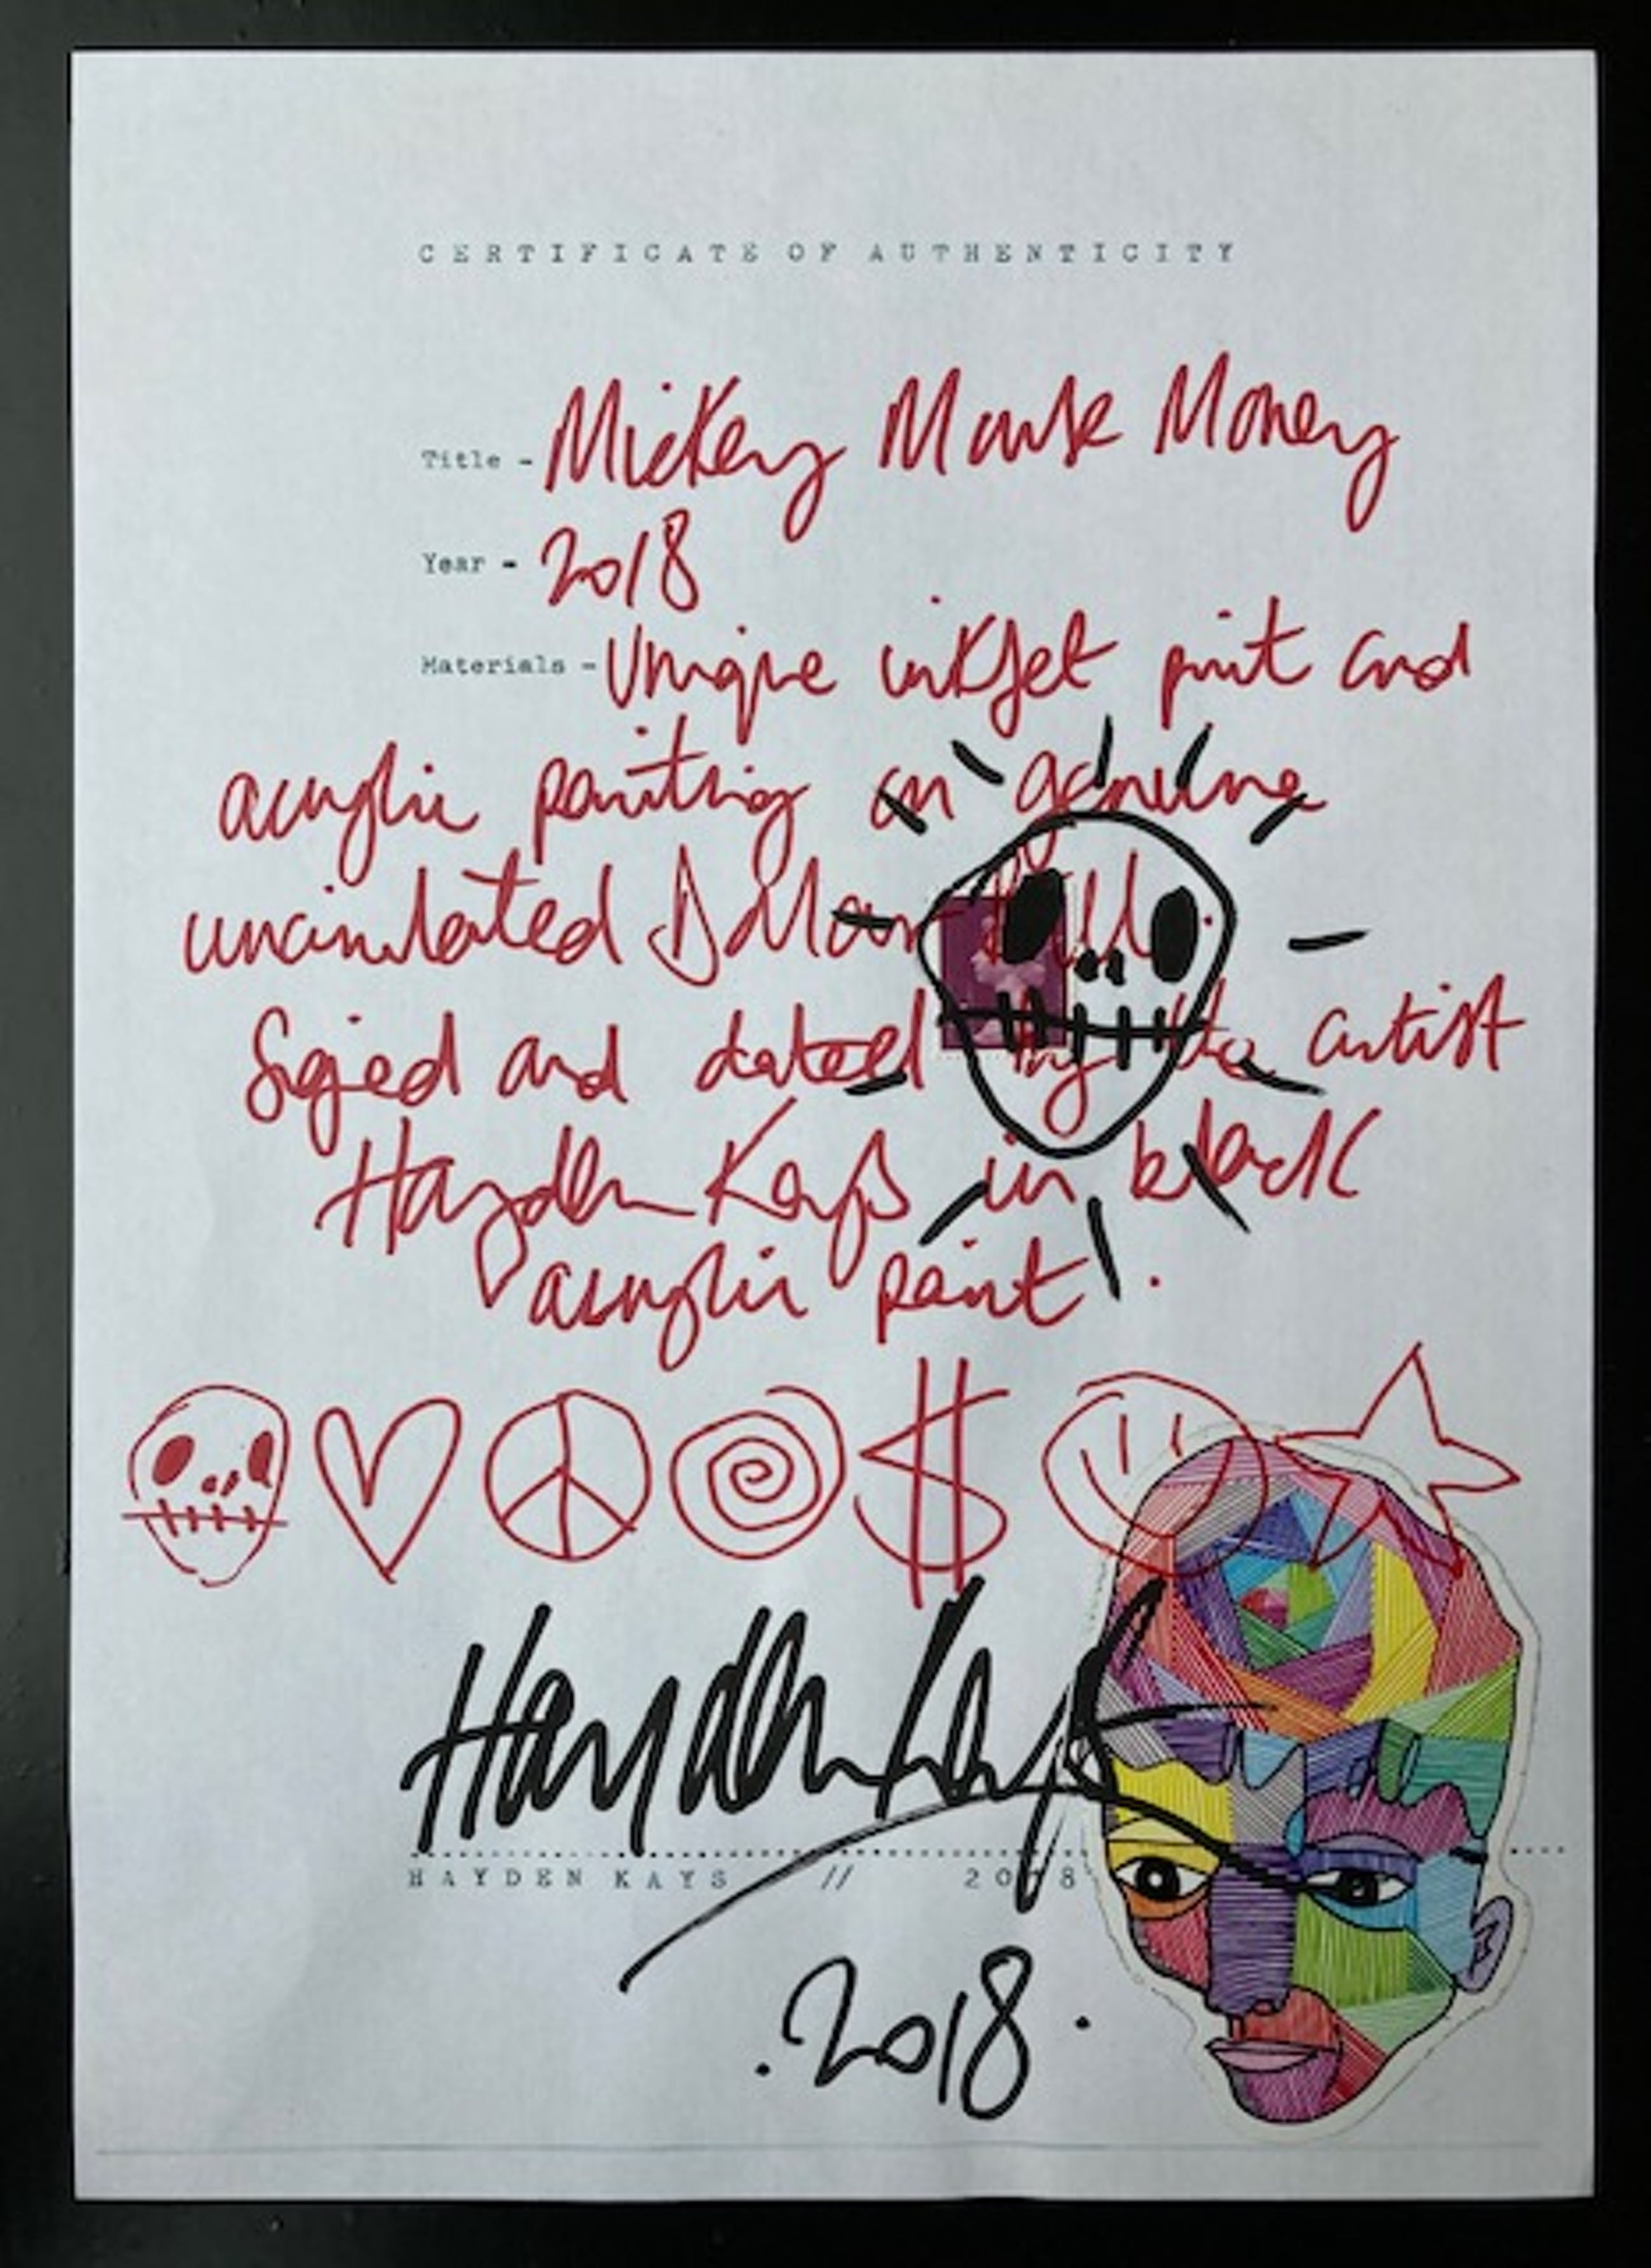 CERTIFICATE OF AUTHENTICITY
Title - Mickey Mouse Money
Year - 2018
Materials - Unique inkjet print and
acrylic painting on genuine
uncirculated Dollar Bill.
Signed and dated by the artist
Hayden Kays in black
acrylic paint.
$
Hayden Kays
HAYDEN KAYS // 2018
.2018.